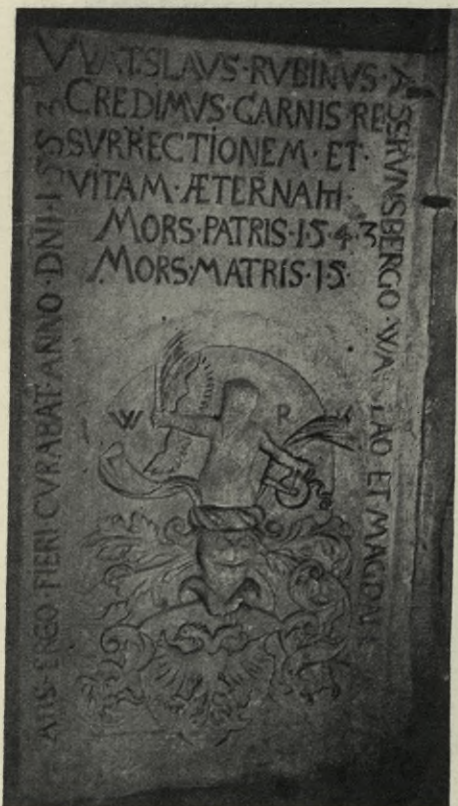 VVATSLAVS · RVBINVS · A
CREDIMVS · CARNIS RE
SVRRECTIONEM · ET ·
VITAM · ÆTERNAM ·
MORS · PATRIS · 1543
MORS · MATRIS · 15
SSRVNSBERGO · ET MAGDA
W R
ERGO FIERI CVRABAT · ANNO · DNI · 1553